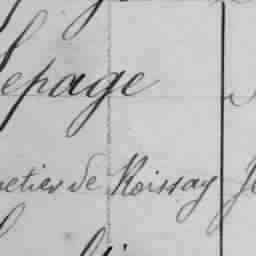 Lepage
netier de Roissay